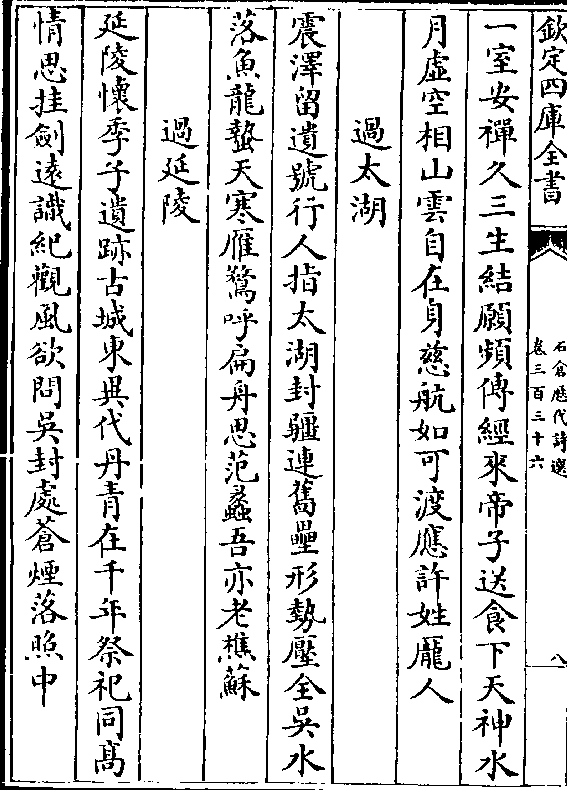 欽定四庫全書
石倉歷代詩選
卷三百三十六
八
一室安禪久三生結願頻傳經來帝子送食下天神水
月虛空相山雲自在身慈航如可渡應許姓龎人
過太湖
震澤留遺號行人指太湖封疆連舊壘形勢壓全吳水
落魚龍蟄天寒雁鶩呼扁舟思范蠡吾亦老樵蘇
過延陵
延陵懷季子遺跡古城東異代丹青在千年祭祀同髙
情思挂劍逺識紀觀風欲問吳封處蒼煙落照中